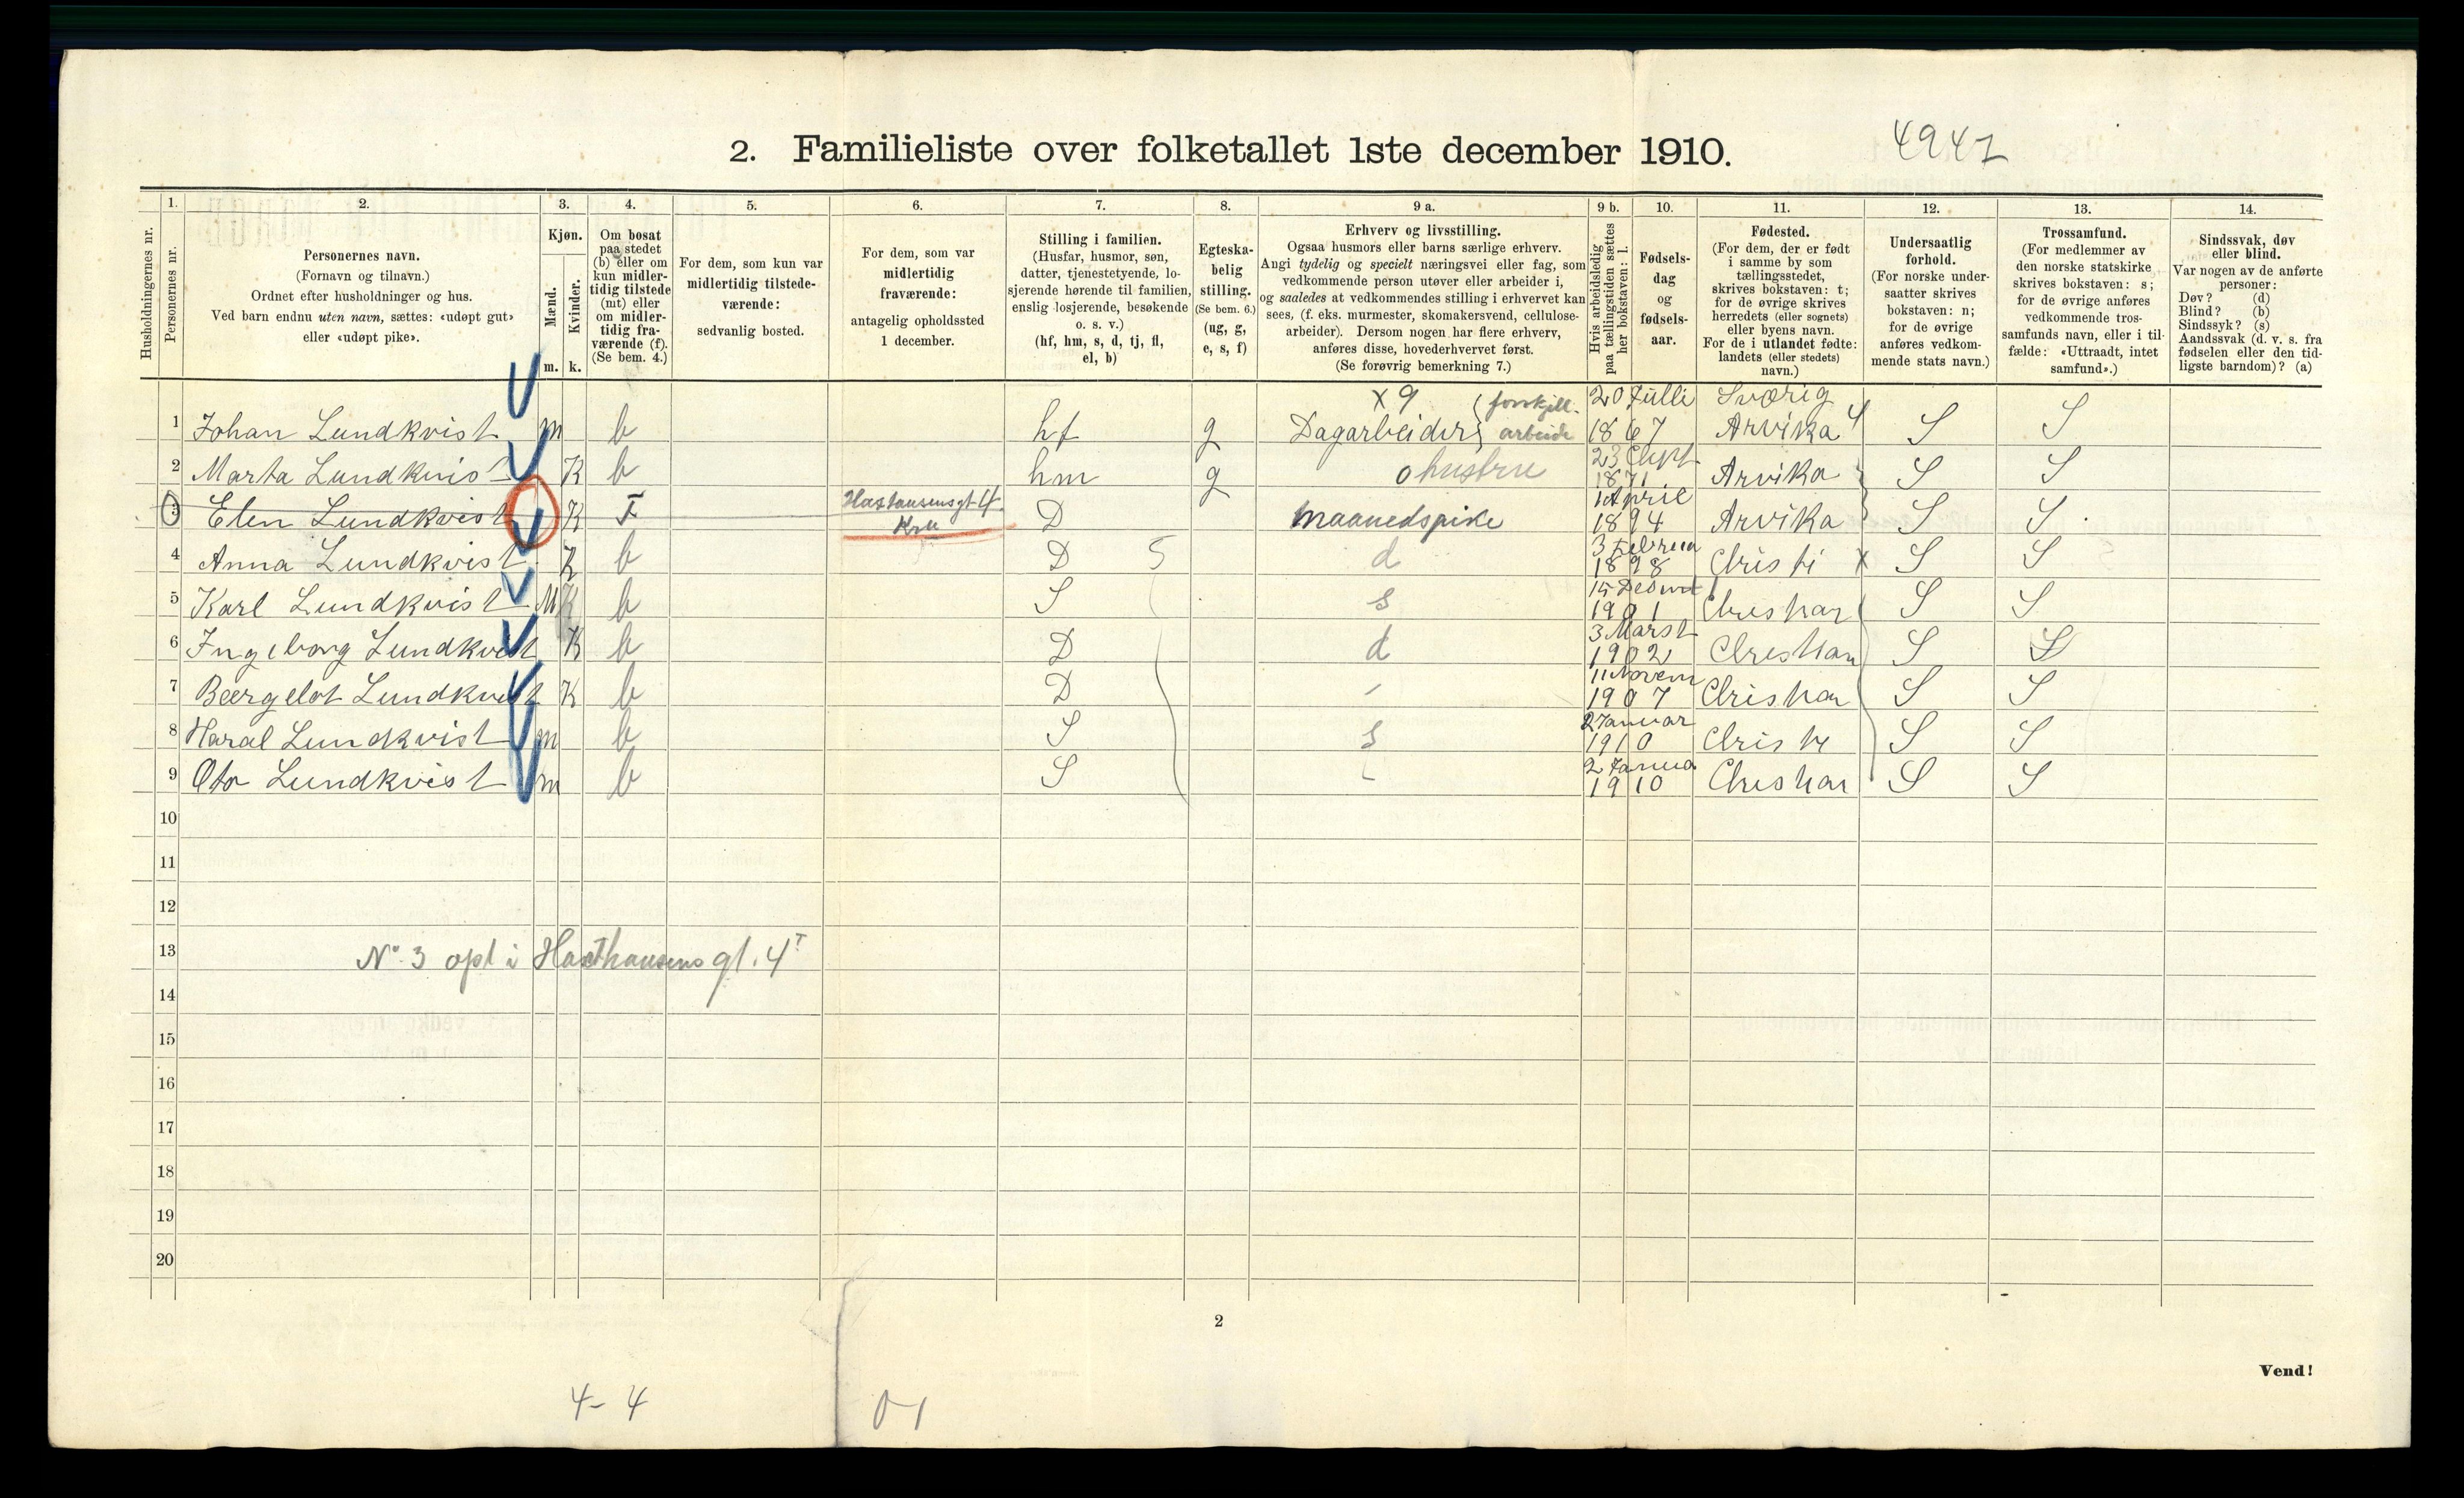 2. Familieliste over folketallet 1ste december 1910. 4947
1. 2. 3. 4. 5. 6. 7. 8. 9 a. 9 b. 10. 11. 12. 13. 14.
Husholdningernes nr.
Personernes nr.
Personernes navn.
(Fornavn og tilnavn.)
Ordnet efter husholdninger og hus.
Ved barn endnu uten navn, sættes: «udøpt gut»
eller «udøpt pike».
Kjøn.
Mænd.
Kvinder.
m. k.
Om bosat
paa stedet
(b) eller om
kun midler-
tidig tilstede
(mt) eller
om midler-
tidig fra-
værende (f).
(Se bem. 4.)
For dem, som kun var
midlertidig tilstede-
værende:
sedvanlig bosted.
For dem, som var
midlertidig
fraværende:
antagelig opholdssted
1 december.
Stilling i familien.
(Husfar, husmor, søn,
datter, tjenestetyende, lo-
sjerende hørende til familien,
enslig losjerende, besøkende
o. s. v.)
(hf, hm, s, d, tj, fl,
el, b)
Egteska-
belig
stilling.
(Se bem. 6.)
(ug, g,
e, s, f)
Erhverv og livsstilling.
Ogsaa husmors eller barns særlige erhverv.
Angi tydelig og specielt næringsvei eller fag, som
vedkommende person utøver eller arbeider i,
og saaledes at vedkommendes stilling i erhvervet kan
sees, (f. eks. murmester, skomakersvend, cellulose-
arbeider). Dersom nogen har flere erhverv,
anføres disse, hovederhvervet først.
(Se forøvrig bemerkning 7.)
Hvis arbeidsledig
paa tællingstiden sættes
her bokstaven: l.
Fødsels-
dag
og
fødsels-
aar.
Fødested.
(For dem, der er født
i samme by som
tællingsstedet,
skrives bokstaven: t;
for de øvrige skrives
herredets (eller sognets)
eller byens navn.
For de i utlandet fødte:
landets (eller stedets)
navn.)
Undersaatlig
forhold.
(For norske under-
saatter skrives
bokstaven: n;
for de øvrige
anføres vedkom-
mende stats navn.)
Trossamfund.
(For medlemmer av
den norske statskirke
skrives bokstaven: s;
for de øvrige anføres
vedkommende tros-
samfunds navn, eller i til-
fælde: «Uttraadt, intet
samfund».)
Sindssvak, døv
eller blind.
Var nogen av de anførte
personer:
Døv? (d)
Blind? (b)
Sindssyk? (s)
Aandssvak (d. v. s. fra
fødselen eller den tid-
ligste barndom)? (a)
x 9 forskjell. 20 Julli Sværig
1 Johan Lundkvist m b hf g Dagarbeider arbeide 1867 Arvika 4 S S
23 Sept
2 Marta Lundkvist K b hm g o hustru 1871 Arvika S S
Haxtausensgt 4. 1 April
3 Elen Lundkvist K F Kra D maanedspike 1894 Arvika S S
3 Februa
4 Anna Lundkvist K b D 5 d 1898 Christi x S S
15
5 Karl Lundkvist M b S s 1901 Christian S S
3 Marst
6 Ingeborg Lundkvist K b D d 1902 Christian S S
11 Novem
7 Beergelot Lundkvist K b D - 1907 Christian S S
2 Januar
8 Haral Lundkvist m b S s 1910 Christi S S
2 Janua
9 Oto Lundkvist m b S - 1910 Christian S S
10
11
12
13 No 3 opt i Haxthausens gt. 4 I
14
15
16
17
18
19
20
2
Vend!
4 - 4 0-1